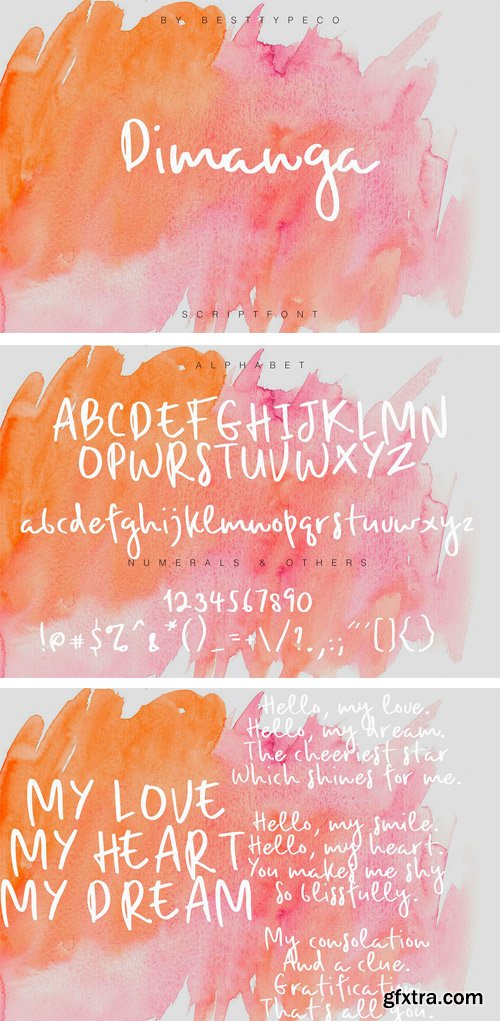 BY BESTTYPECO
Dimanga
SCRIPTFONT
ALPHABET
ABCDEFGHIJKLMN
OPWRSTUVWXYZ
abcdefghijklmnopqrstuvwxyz
NUMERALS & OTHERS
1234567890
!@#$%^&*()_=+\/?.,:;"'[]{}
MY LOVE
MY HEART
MY DREAM
Hello, my love.
Hello, my dream.
The cheeriest star
Which shines for me.
Hello, my smile.
Hello, my heart.
You makes me shy
So blissfully.
My consolation
And a clue.
Gratification
That's all you.
gfxtra.com